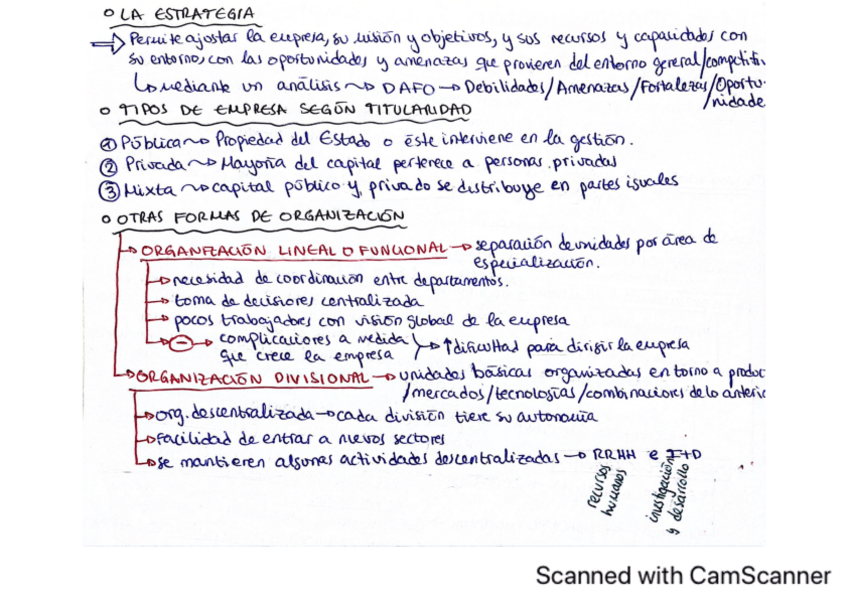 o LA ESTRATEGIA
⇒ Permite ajustar la empresa, su misión y objetivos, y sus recursos y capacidades con
su entorno, con las oportunidades y amenazas que provienen del entorno general/competiti
↳ mediante un análisis ~> DAFO → Debilidades/Amenazas/Fortalezas/Oportu-
/nidade
o TIPOS DE EMPRESA SEGÚN TITULARIDAD
① Pública ~> Propiedad del Estado o éste interviene en la gestión.
② Privada ~> Mayoría del capital pertenece a personas privadas
③ Mixta ~> capital público y privado se distribuye en partes iguales
o OTRAS FORMAS DE ORGANIZACIÓN
→ ORGANIZACIÓN LINEAL O FUNCIONAL → separación de unidades por área de
especialización.
→ necesidad de coordinación entre departamentos.
→ toma de decisiones centralizada
→ pocos trabajadores con visión global de la empresa
→ ⊖ → complicaciones a medida
que crece la empresa → ↑ dificultad para dirigir la empresa
→ ORGANIZACIÓN DIVISIONAL → unidades básicas organizadas en torno a produc
/mercados/tecnologías/combinaciones de lo anterio
→ org. descentralizada → cada división tiene su autonomía
→ facilidad de entrar a nuevos sectores
→ se mantienen algunas actividades descentralizadas → RRHH e I+D
recursos
humanos
investigación
y desarrollo
Scanned with CamScanner